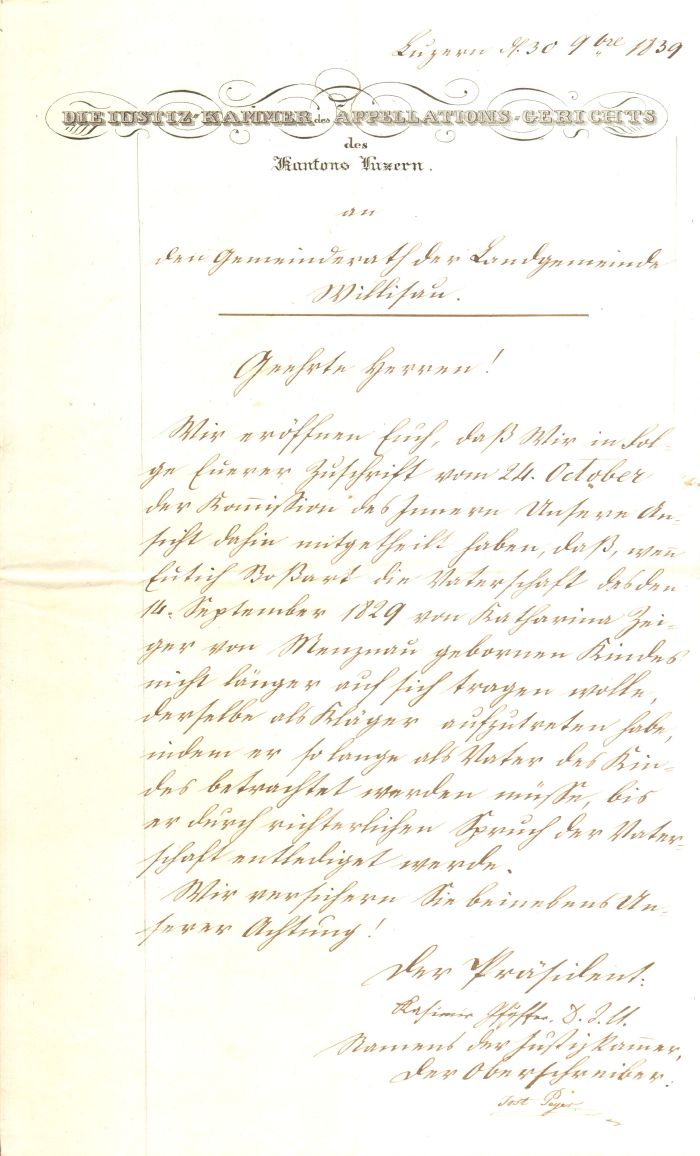 Luzern d. 30 9bre 1839
DIE IUSTIZ-KAMMER des APPELLATIONS-GERICHTS
des
Kantons Luzern.
an
den Gemeinderath der Landgemeinde
Willisau.
Geehrte Herren!
Wir eröffnen Euch, daß Wir in Fol-
ge Euerer Zuschrift vom 24. October
der Kom̄ission des Innern Unsere An-
sicht dahin mitgetheilt haben, daß, wen̄
Eutich Boßart die Vaterschaft des den
14. September 1829 von Katharina Zei-
ger von Menznau gebornen Kindes
nicht länger auf sich tragen wolle,
derselbe als Kläger aufzutreten habe,
indem er so lange als Vater des Kin-
des betrachtet werden müsse, bis
er durch richterlichen Spruch der Vater-
schaft entlediget werde.
Wir versichern Sie beinebens Un-
serer Achtung!
Der Präsident:
Kasimir Pfÿffer. D. I. U.
Namens der Justizkammer,
Der Oberschreiber:
Jost Peÿer